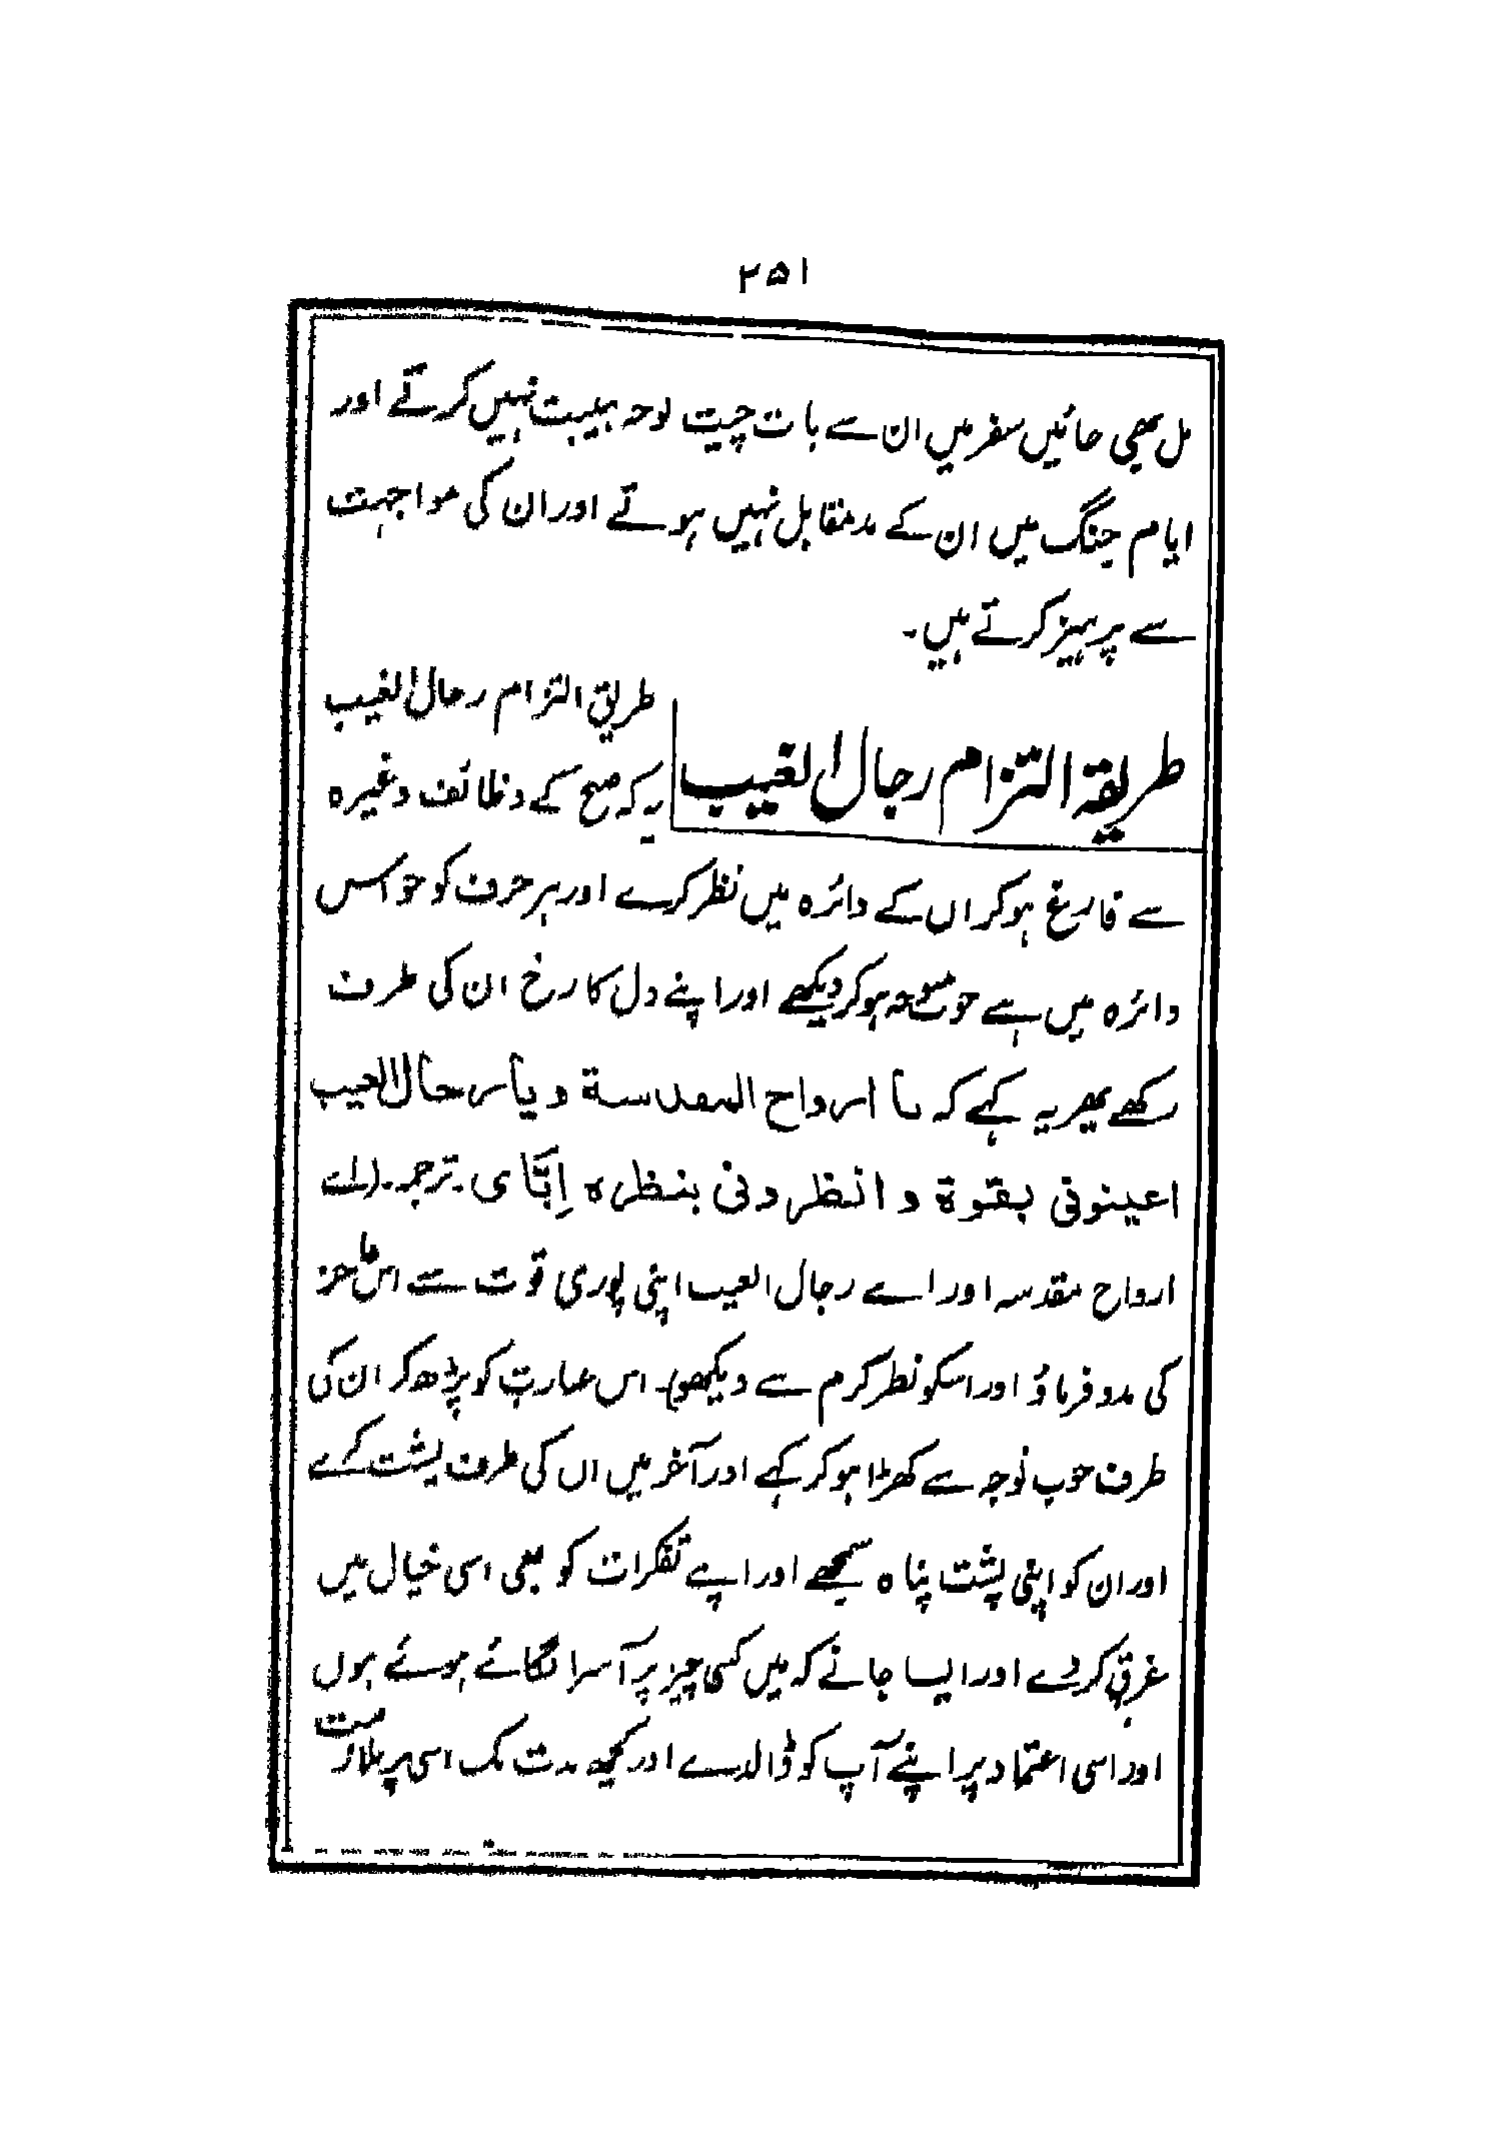 ۲۵۱
مل بھی جائیں سفر میں ان سے بات چیت بوجہ ہیبت نہیں کرتے اور
ایام جنگ میں ان کے مد مقابل نہیں ہوتے اور ان کی مواجہت
سے پرہیز کرتے ہیں۔
طریقۃ التزام رجال الغیب
طریق التزام رجال الغیب
یہ کہ صبح کے وظائف وغیرہ
سے فارغ ہو کر ان کے دائرہ میں نظر کرے اور ہر حرف کو جو اس
دائرہ میں ہے خوب متوجہ ہو کر دیکھے اور اپنے دل کا رخ ان کی طرف
رکھے پھر یہ کہے کہ یا ارواح المقدسة و یا رجال الغیب
اعینونی بقوة و انظرونی بنظره اِیّای ۔ ترجمہ ۔ (اے
ارواح مقدسہ اور اے رجال الغیب اپنی پوری قوت سے اس عاجز
کی مدد فرماؤ اور اسکو نظر کرم سے دیکھو)۔ اس عبارت کو پڑھ کر ان کی
طرف خوب توجہ سے کھڑا ہو کر کہے اور آخر میں ان کی طرف پشت کرے
اور ان کو اپنی پشت پناہ سمجھے اور اپنے تفکرات کو بھی اسی خیال میں
غرق کر دے اور ایسا جانے کہ میں کسی چیز پر آسرا لگائے ہوئے ہوں
اور اسی اعتماد پر اپنے آپ کو ڈالدے اور کچھ مدت تک اسی پر ملازمت